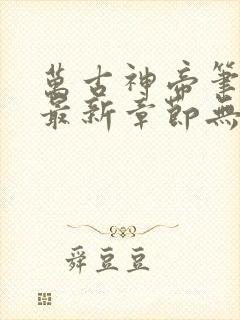 萬古神帝筆
最新章節無
舜豆豆